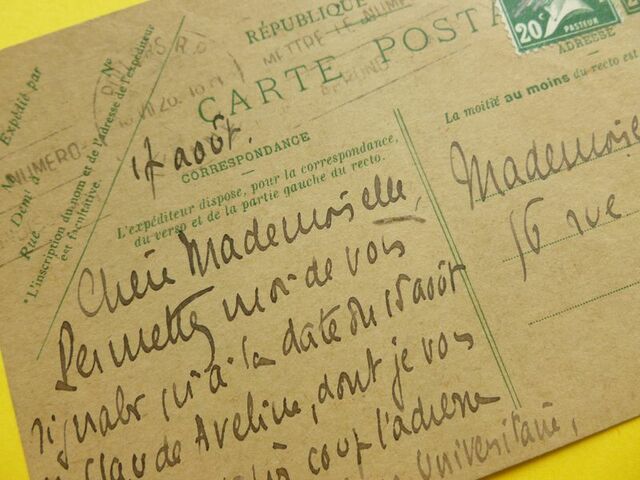 RÉPUBLIQUE
CARTE POSTA
20c
PASTEUR
ADRESSE
METTRE LE NUMÉ
NUMERO
Expédié par
M
Demt à
Rue
No
* L'inscription du nom et de l'adresse de l'expéditeur
est facultative.
17 août.
CORRESPONDANCE
L'expéditeur dispose, pour la correspondance,
du verso et de la partie gauche du recto.
La moitié au moins du recto est
Mademoise
16 rue
Chère Mademoiselle,
Permettez moi de vous
signaler qu'à la date du 15 août
Claude Aveline, dont je vous
coup l'adresse
Universitaire,